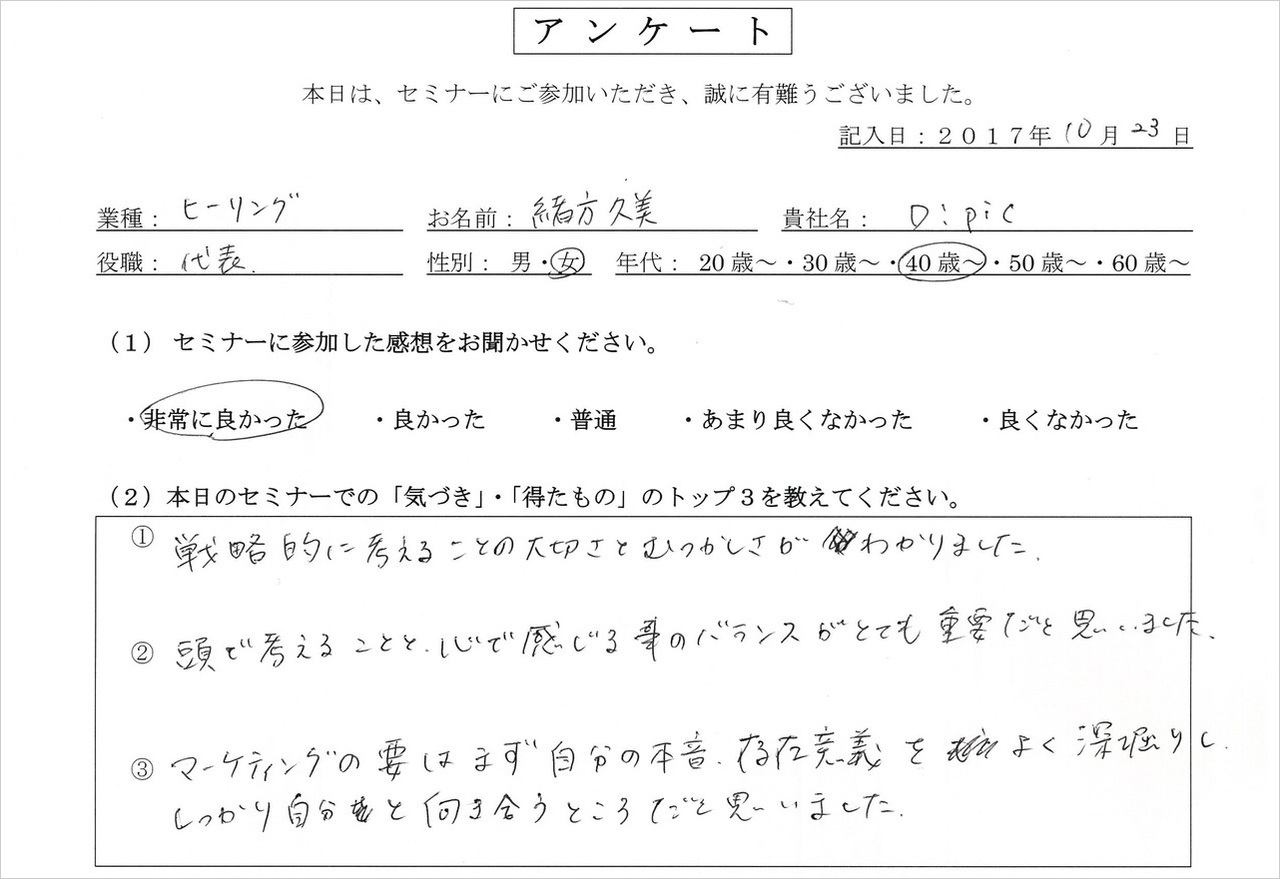 アンケート
本日は、セミナーにご参加いただき、誠に有難うございました。
記入日：２０１７年 10月 23 日
業種： ヒーリング お名前： 緒方久美 貴社名： D:pic
役職： 代表. 性別： 男・女 年代： 20歳～・30歳～・40歳～・50歳～・60歳～
（1） セミナーに参加した感想をお聞かせください。
・非常に良かった ・良かった ・普通 ・あまり良くなかった ・良くなかった
（2）本日のセミナーでの「気づき」・「得たもの」のトップ３を教えてください。
① 戦略的に考えることの大切さとむつかしさが わかりました.
② 頭で考えることと、心で感じる事のバランスがとても重要だと思いました、
③ マーケティングの要はまず自分の本音、存在意義を よく深堀りし、
しっかり自分と向き合うところだと思いました.